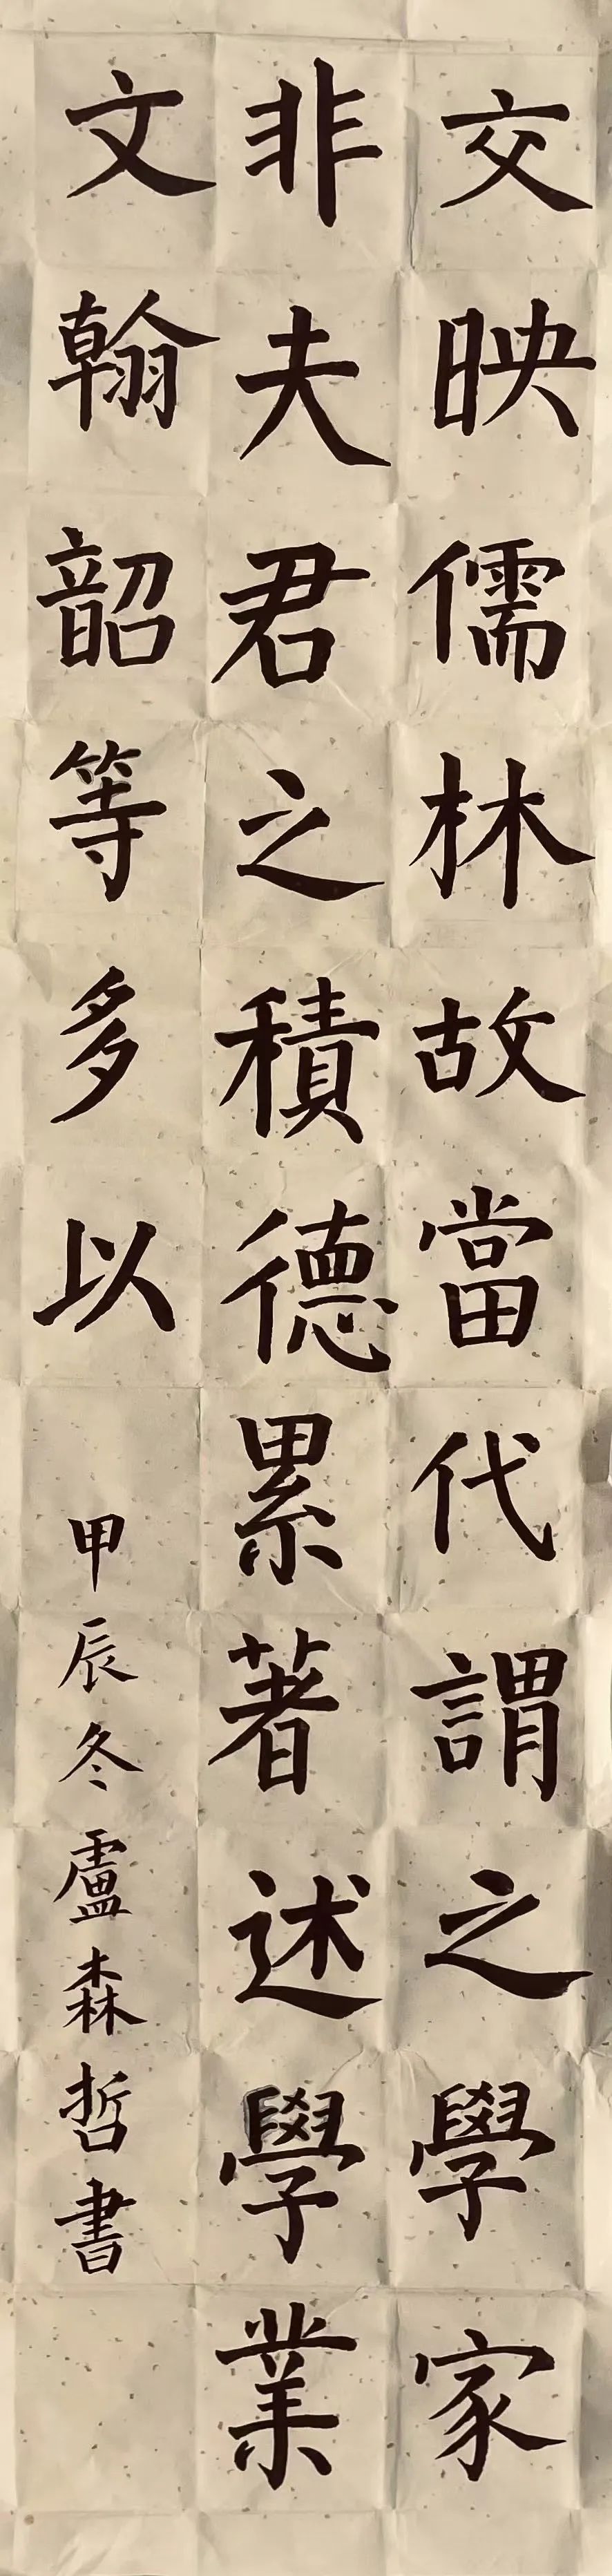 交映儒林故當代謂之學家
非夫君之積德累著述學業
文翰韶等多以
甲辰冬盧森哲書